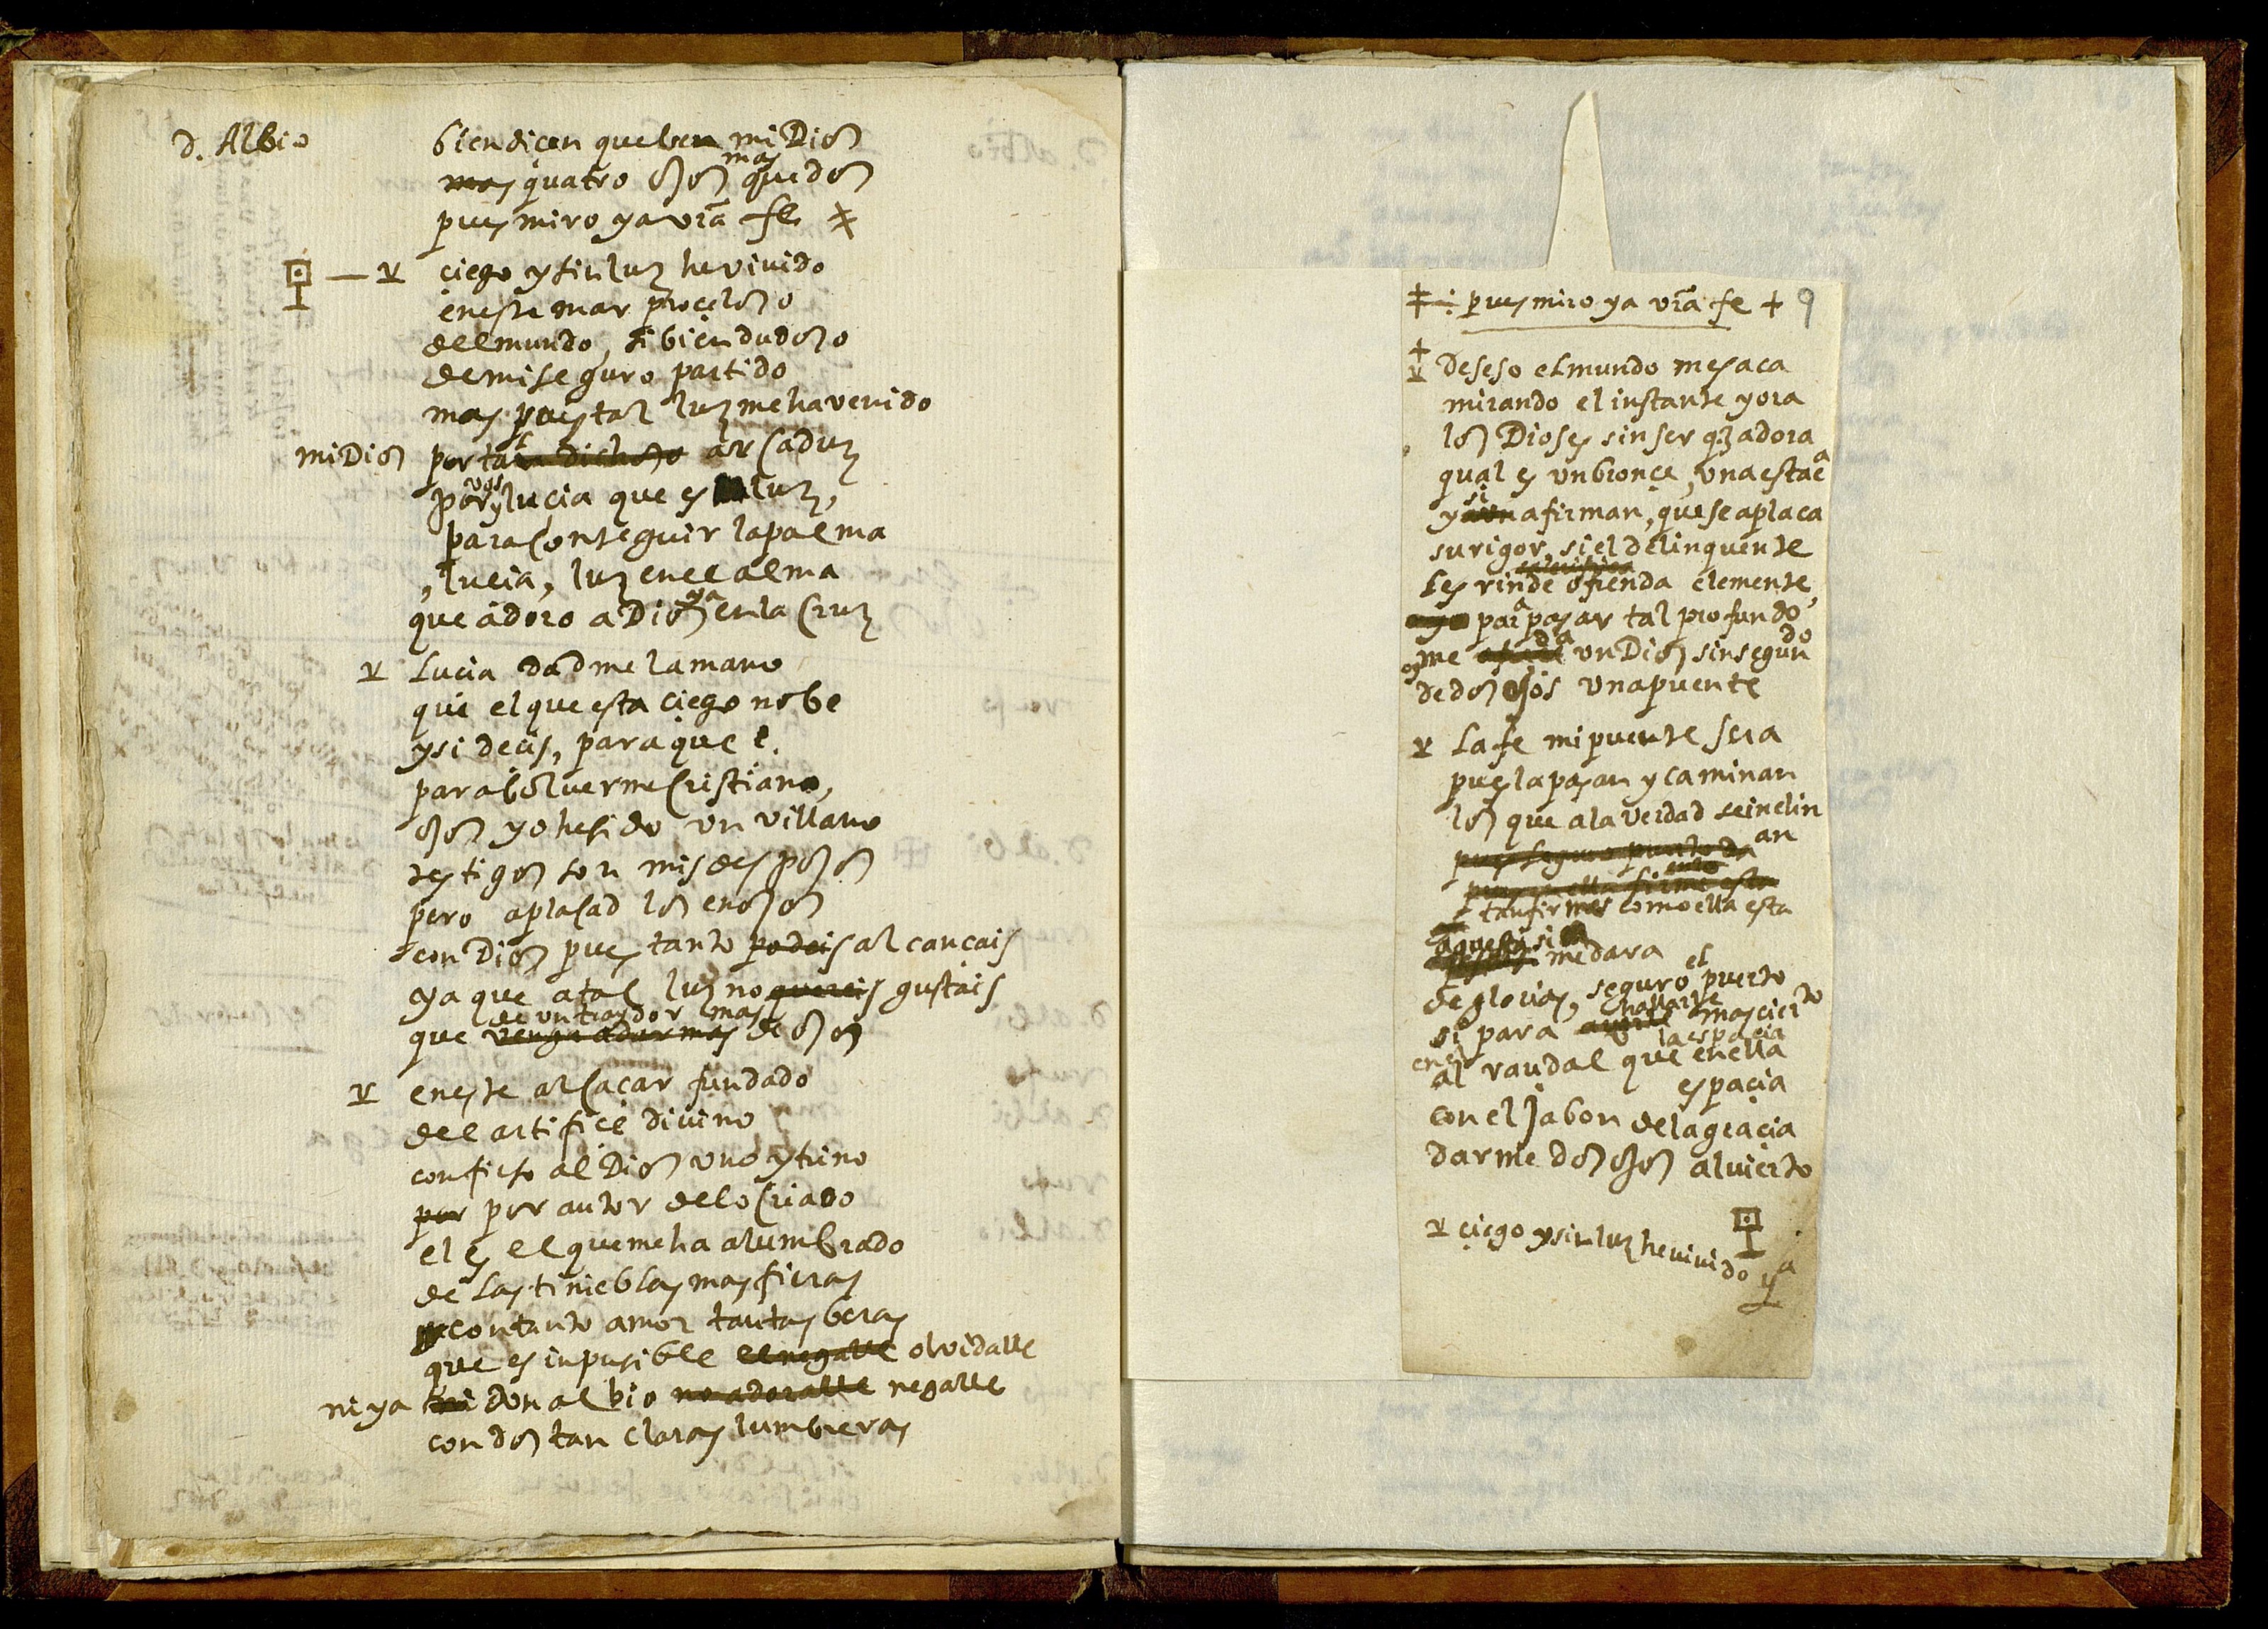 d. Albio
biendicen queben mi Dios
mas quatro ojos mas que dos
pues miro ya vrã fe ⚹
ciego y sin luz he vivido
en este mar proceloso
del mundo, si bien dudoso
de mi seguro partido
mas pues tal luz me ha venido
mi Dios por tal dichoso arcaduz
por vos y lucia que es luz,
para conseguir la palma
, lucia, luz en el alma
que adoro a Dios ya en la Cruz
Lucia dadme la mano
que el que esta ciego no be
y si decis, para que e.
para bolverme Cristiano,
ojos yo he sido un villano
testigos son mis despojos
pero aplacad los enojos
con Dios pues tanto podeis alcançais
ya que a tal luz no quereis gustais
de un traydor mas
que venga a dar mas de ojos
en este alcaçar fundado
del artifice divino
confieso al Dios uno y trino
por por autor de lo criado
el es el que me ha alumbrado
de las tinieblas mas fieras
con tanto amor tantas beras
que es inpusible el negalle olvidalle
ni ya don albio no adoralle negalle
con dos tan claras lumbreras
pues miro ya vrã fe + 9
De seso el mundo me saca
mirando el instante y ora
los Dioses sin ser q adora
qual es un bronçe, una estaca
y si aun afirman, que se aplaca
su rigor, si el delinquente
les rinde ofrenda clemente,
para pasar tal profundo
oy me da un Dios sin segundo
de dos ojos una puente
La fe mi puente sera
pues la pasan y caminan
los que a la verdad se inclinan
pues seguro puerto da
pues en ella firme esta
tan firmes como ella esta
aquesta si me dara
de glorias, seguro el puerto
si para hallarse mas cierto
la espacia
en el al raudal que en ella
espacia
con el jabon de la gracia
darme dos ojos alvierto
ciego y sin luz he vivido ya